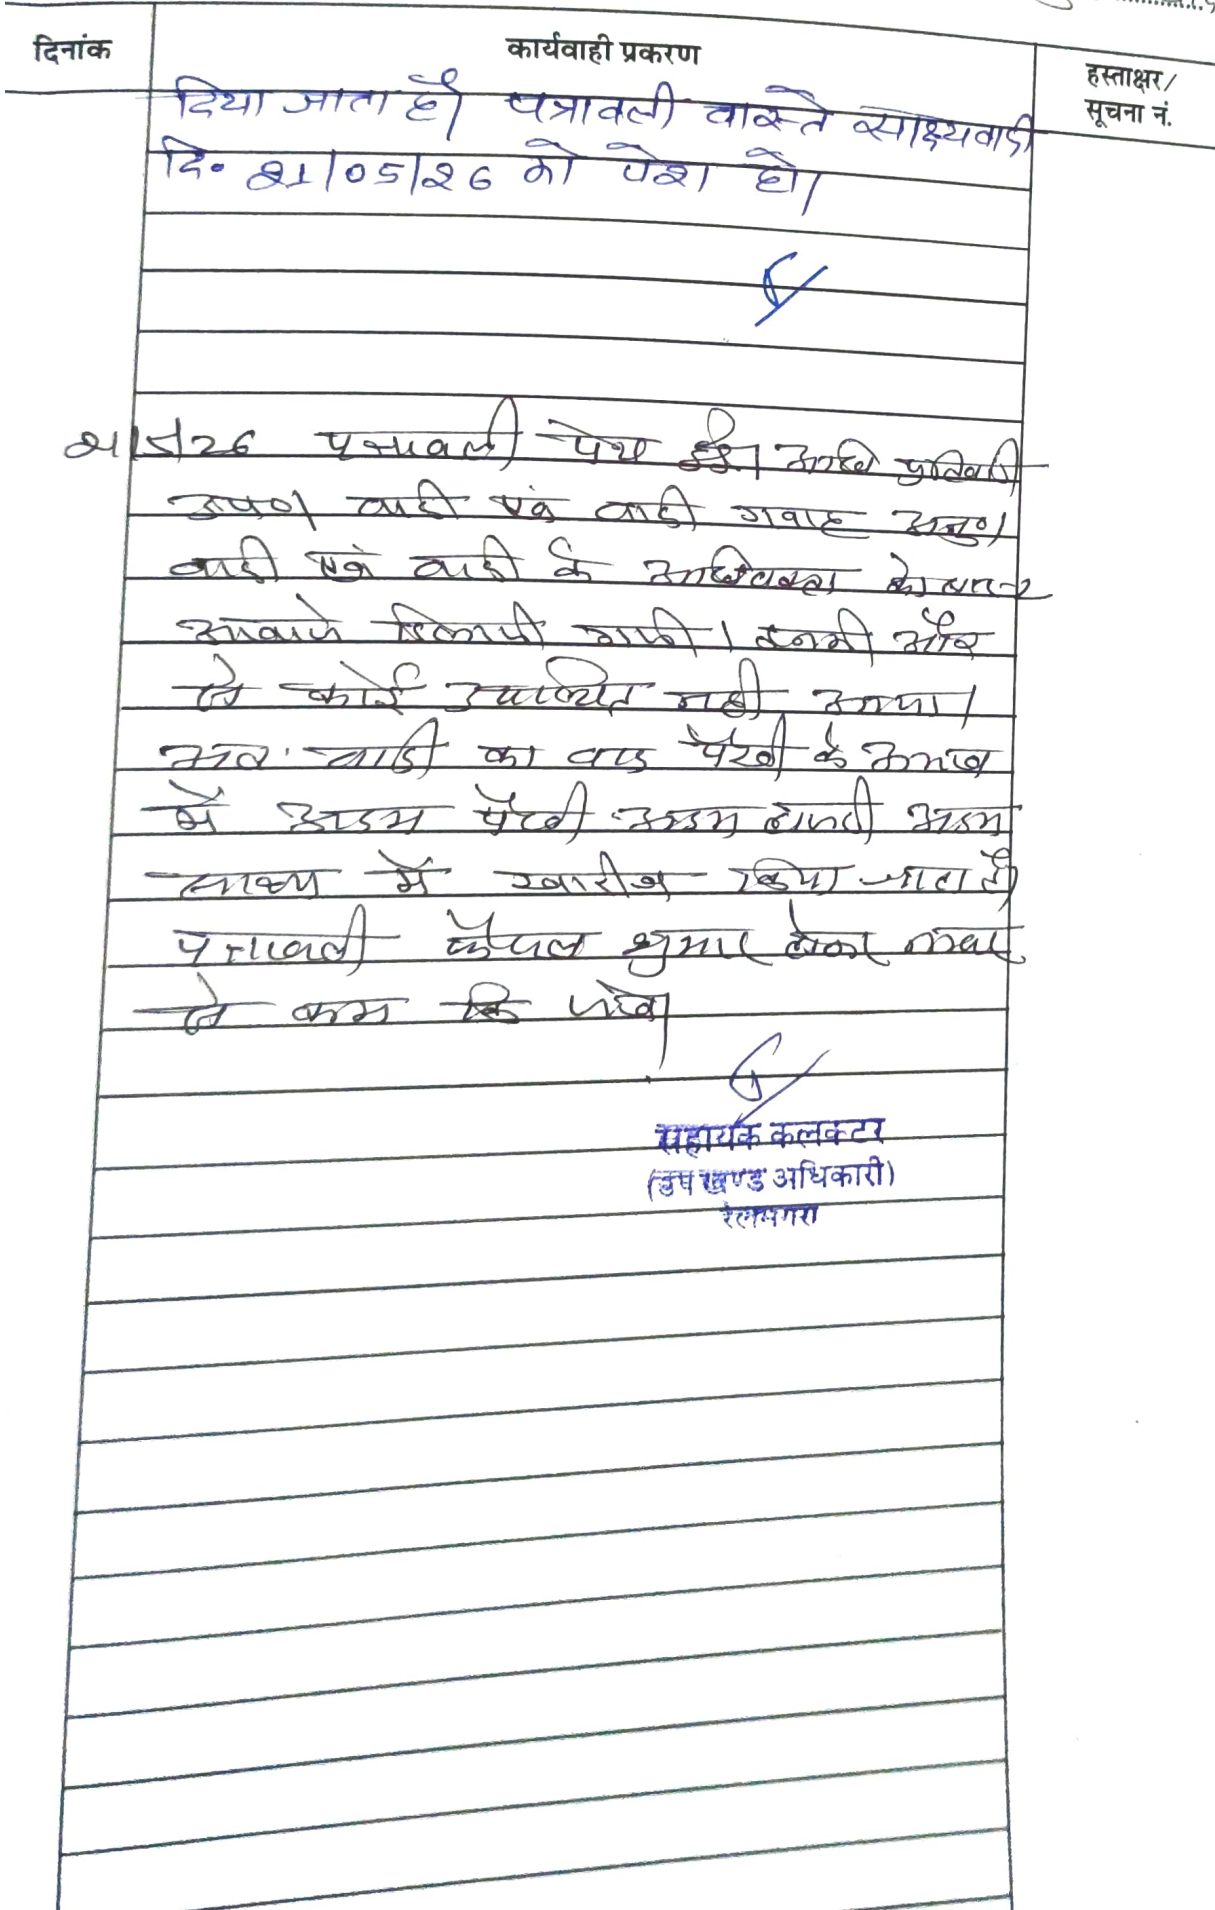 दिनांक
कार्यवाही प्रकरण
हस्ताक्षर/
सूचना नं.
दिया जाता है। पत्रावली वास्ते साक्ष्यवादी
दि. 21/05/26 को पेश हो।
21/5/26 पत्रावली पेश हुई। अधि प्रतिवादी
उप०। वादी एवं वादी गवाह अनु०।
वादी एवं वादी के अधिवक्ता को बार-२
आवाजे दिलायी गयी। इनकी और
से कोई उपस्थित नही आया।
अतः वादी का वाद पैरवी के अभाव
में अदम पैरवी अदम हाजरी अदम
साक्ष्य में खारीज किया जाता है।
पत्रावली फैसल शुमार होकर नम्बर
से कम हो जावे।
सहायक कलक्टर
(उप खण्ड अधिकारी)
रेलमगरा